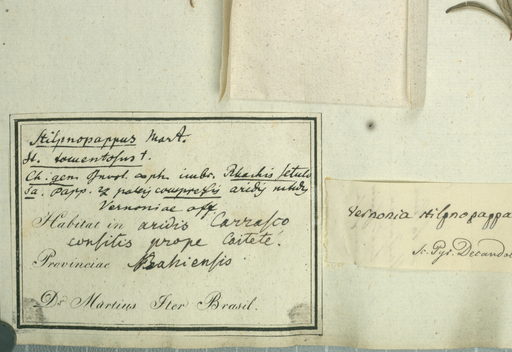 Stilpnopappus Mart.
St. tomentosus †.
Ch: gen. Invol. caph. imbr. Rhachis setulo
sa. Papp. ex paleis compressis aridis nitidis
Vernoniae aff
Habitat in aridis Carrasco
consitis prope Caitete.
Provinciae Bahiensis.
Dr. Martius Iter Brasil.
Vernonia stilpnopappa
A. Pyr. Decandol